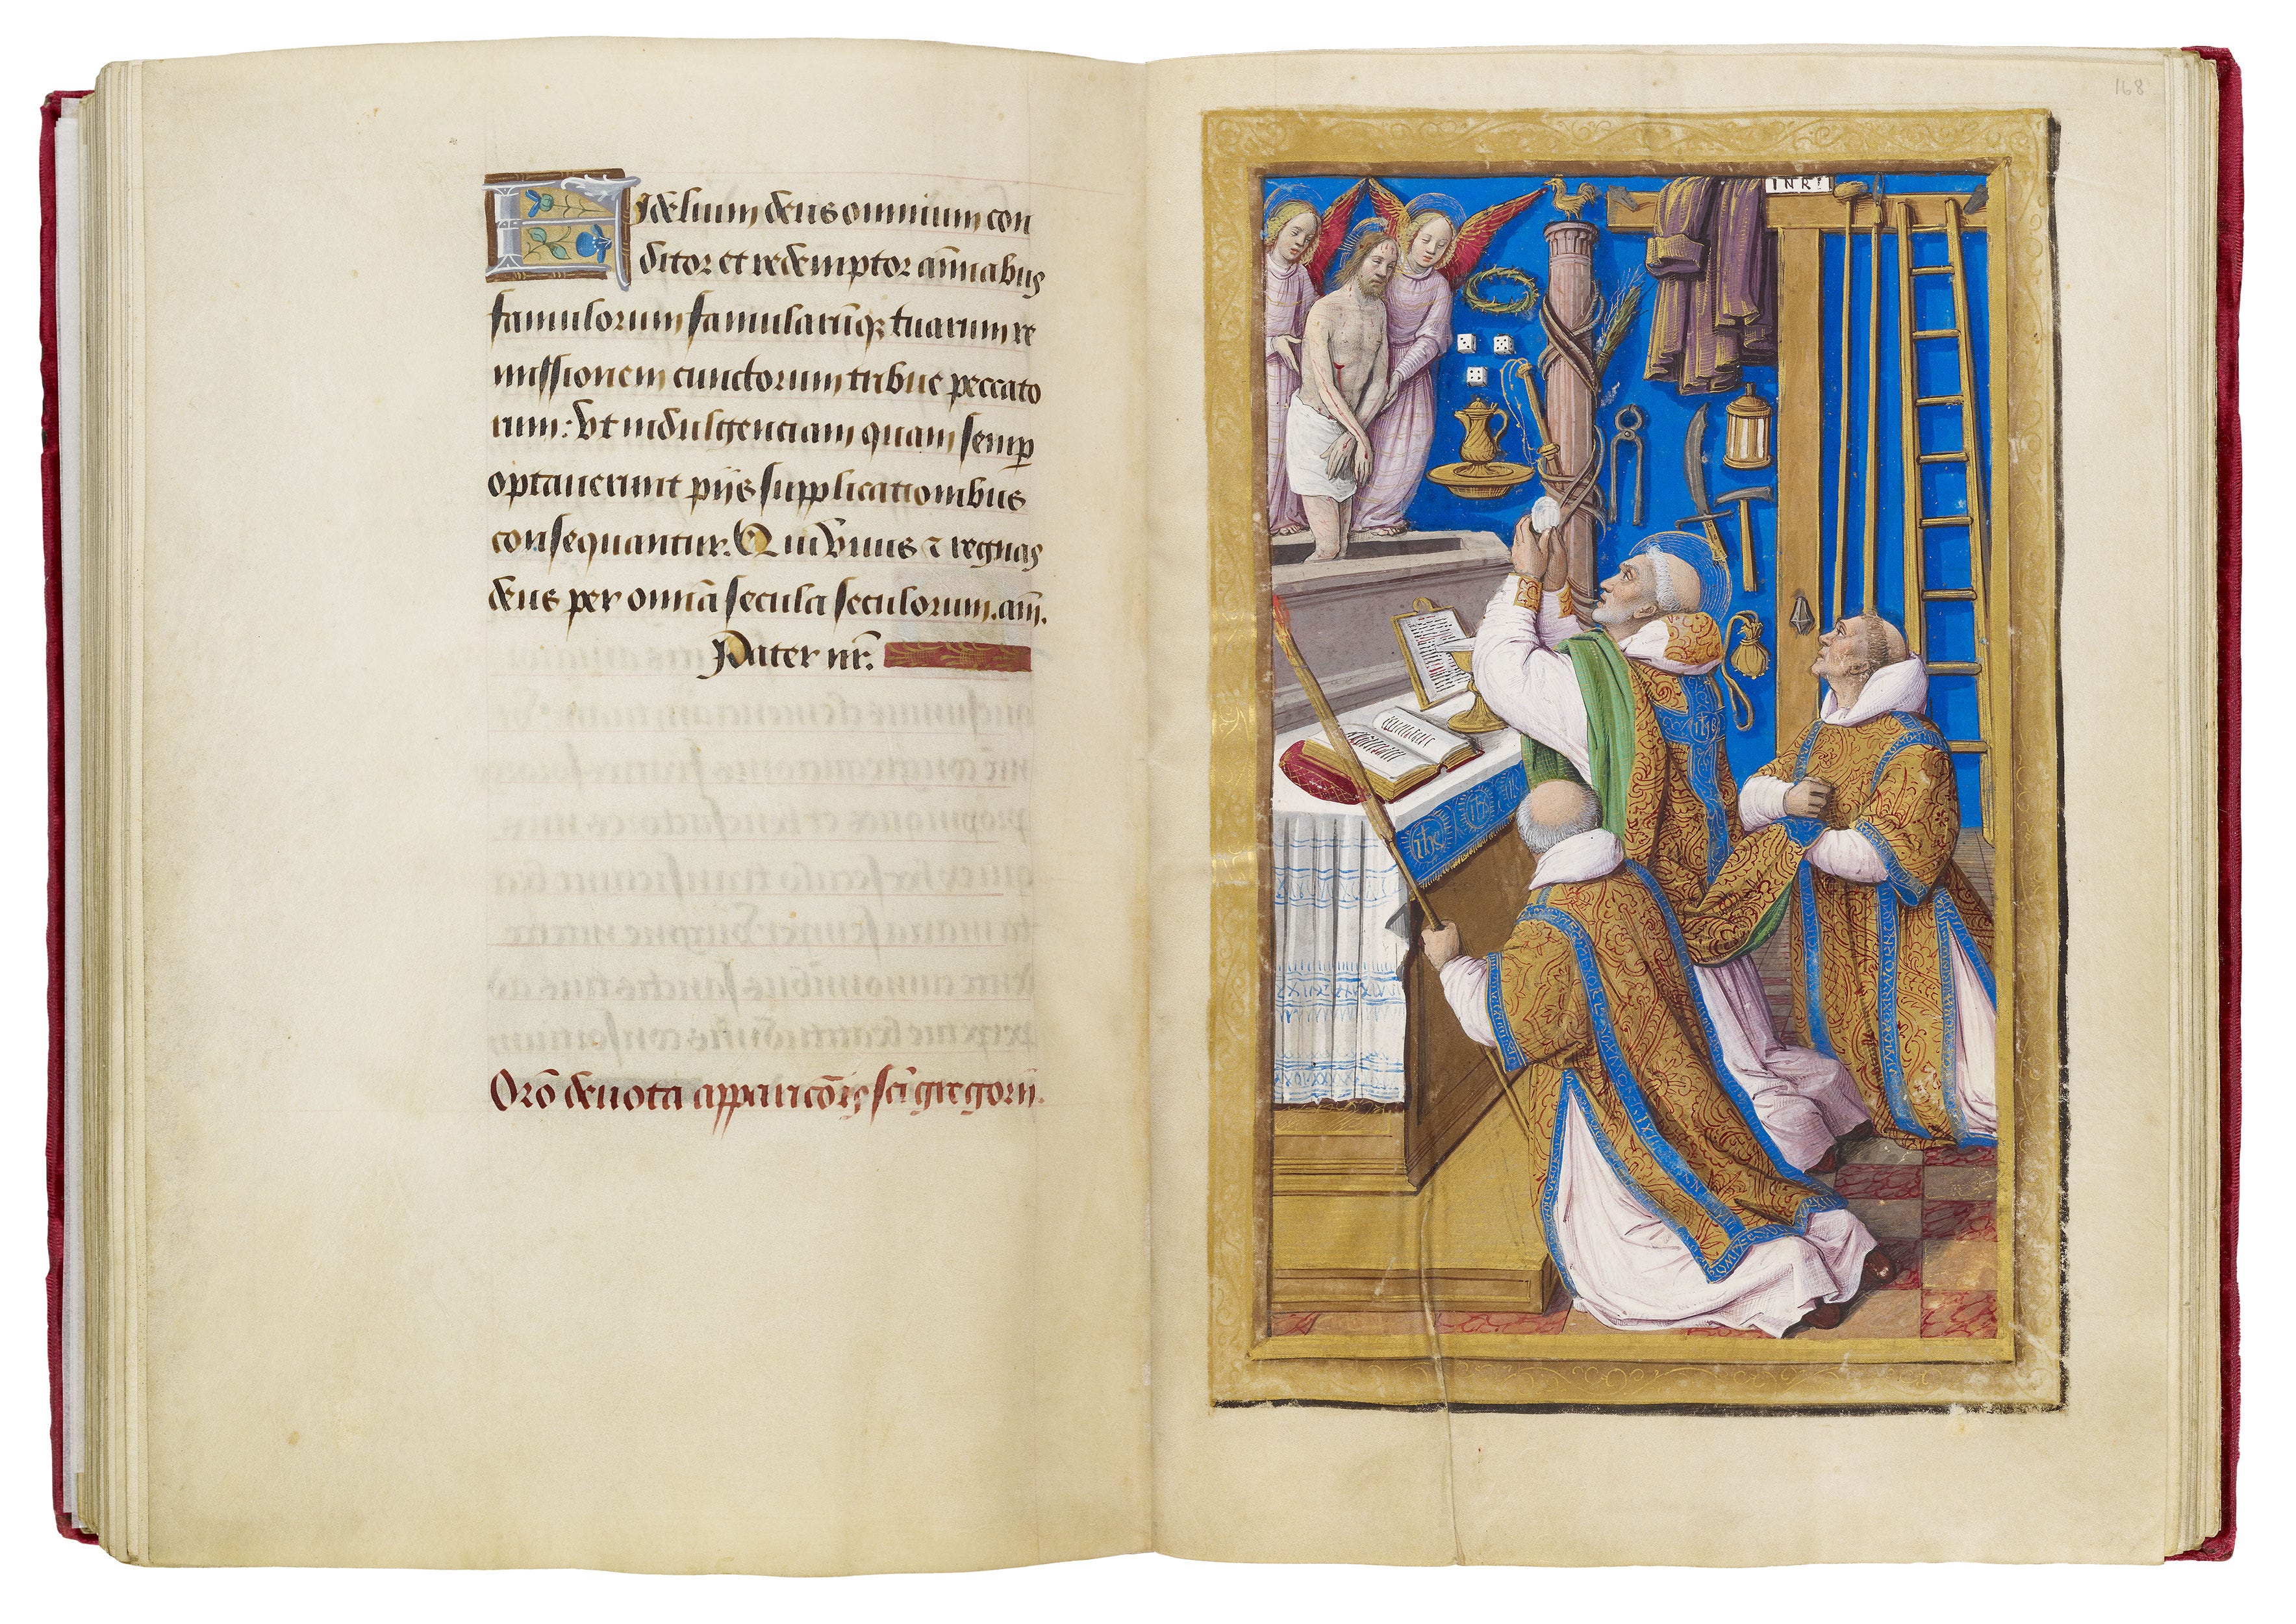 Fidelium deus omnium con
ditor et redemptor aīabus
famulorum famularūq; tuarum re
missionem cunctorum tribue peccato
rum: Vt indulgenciam quam semp
optauerunt piis supplicationibus
consequantur. Qui viuis ⁊ regnas
deus per omīa secula seculorum. am̄.
Pater nr̄.
Orō deuota appariciōīs scī gregorii.
168
INRI
ihs